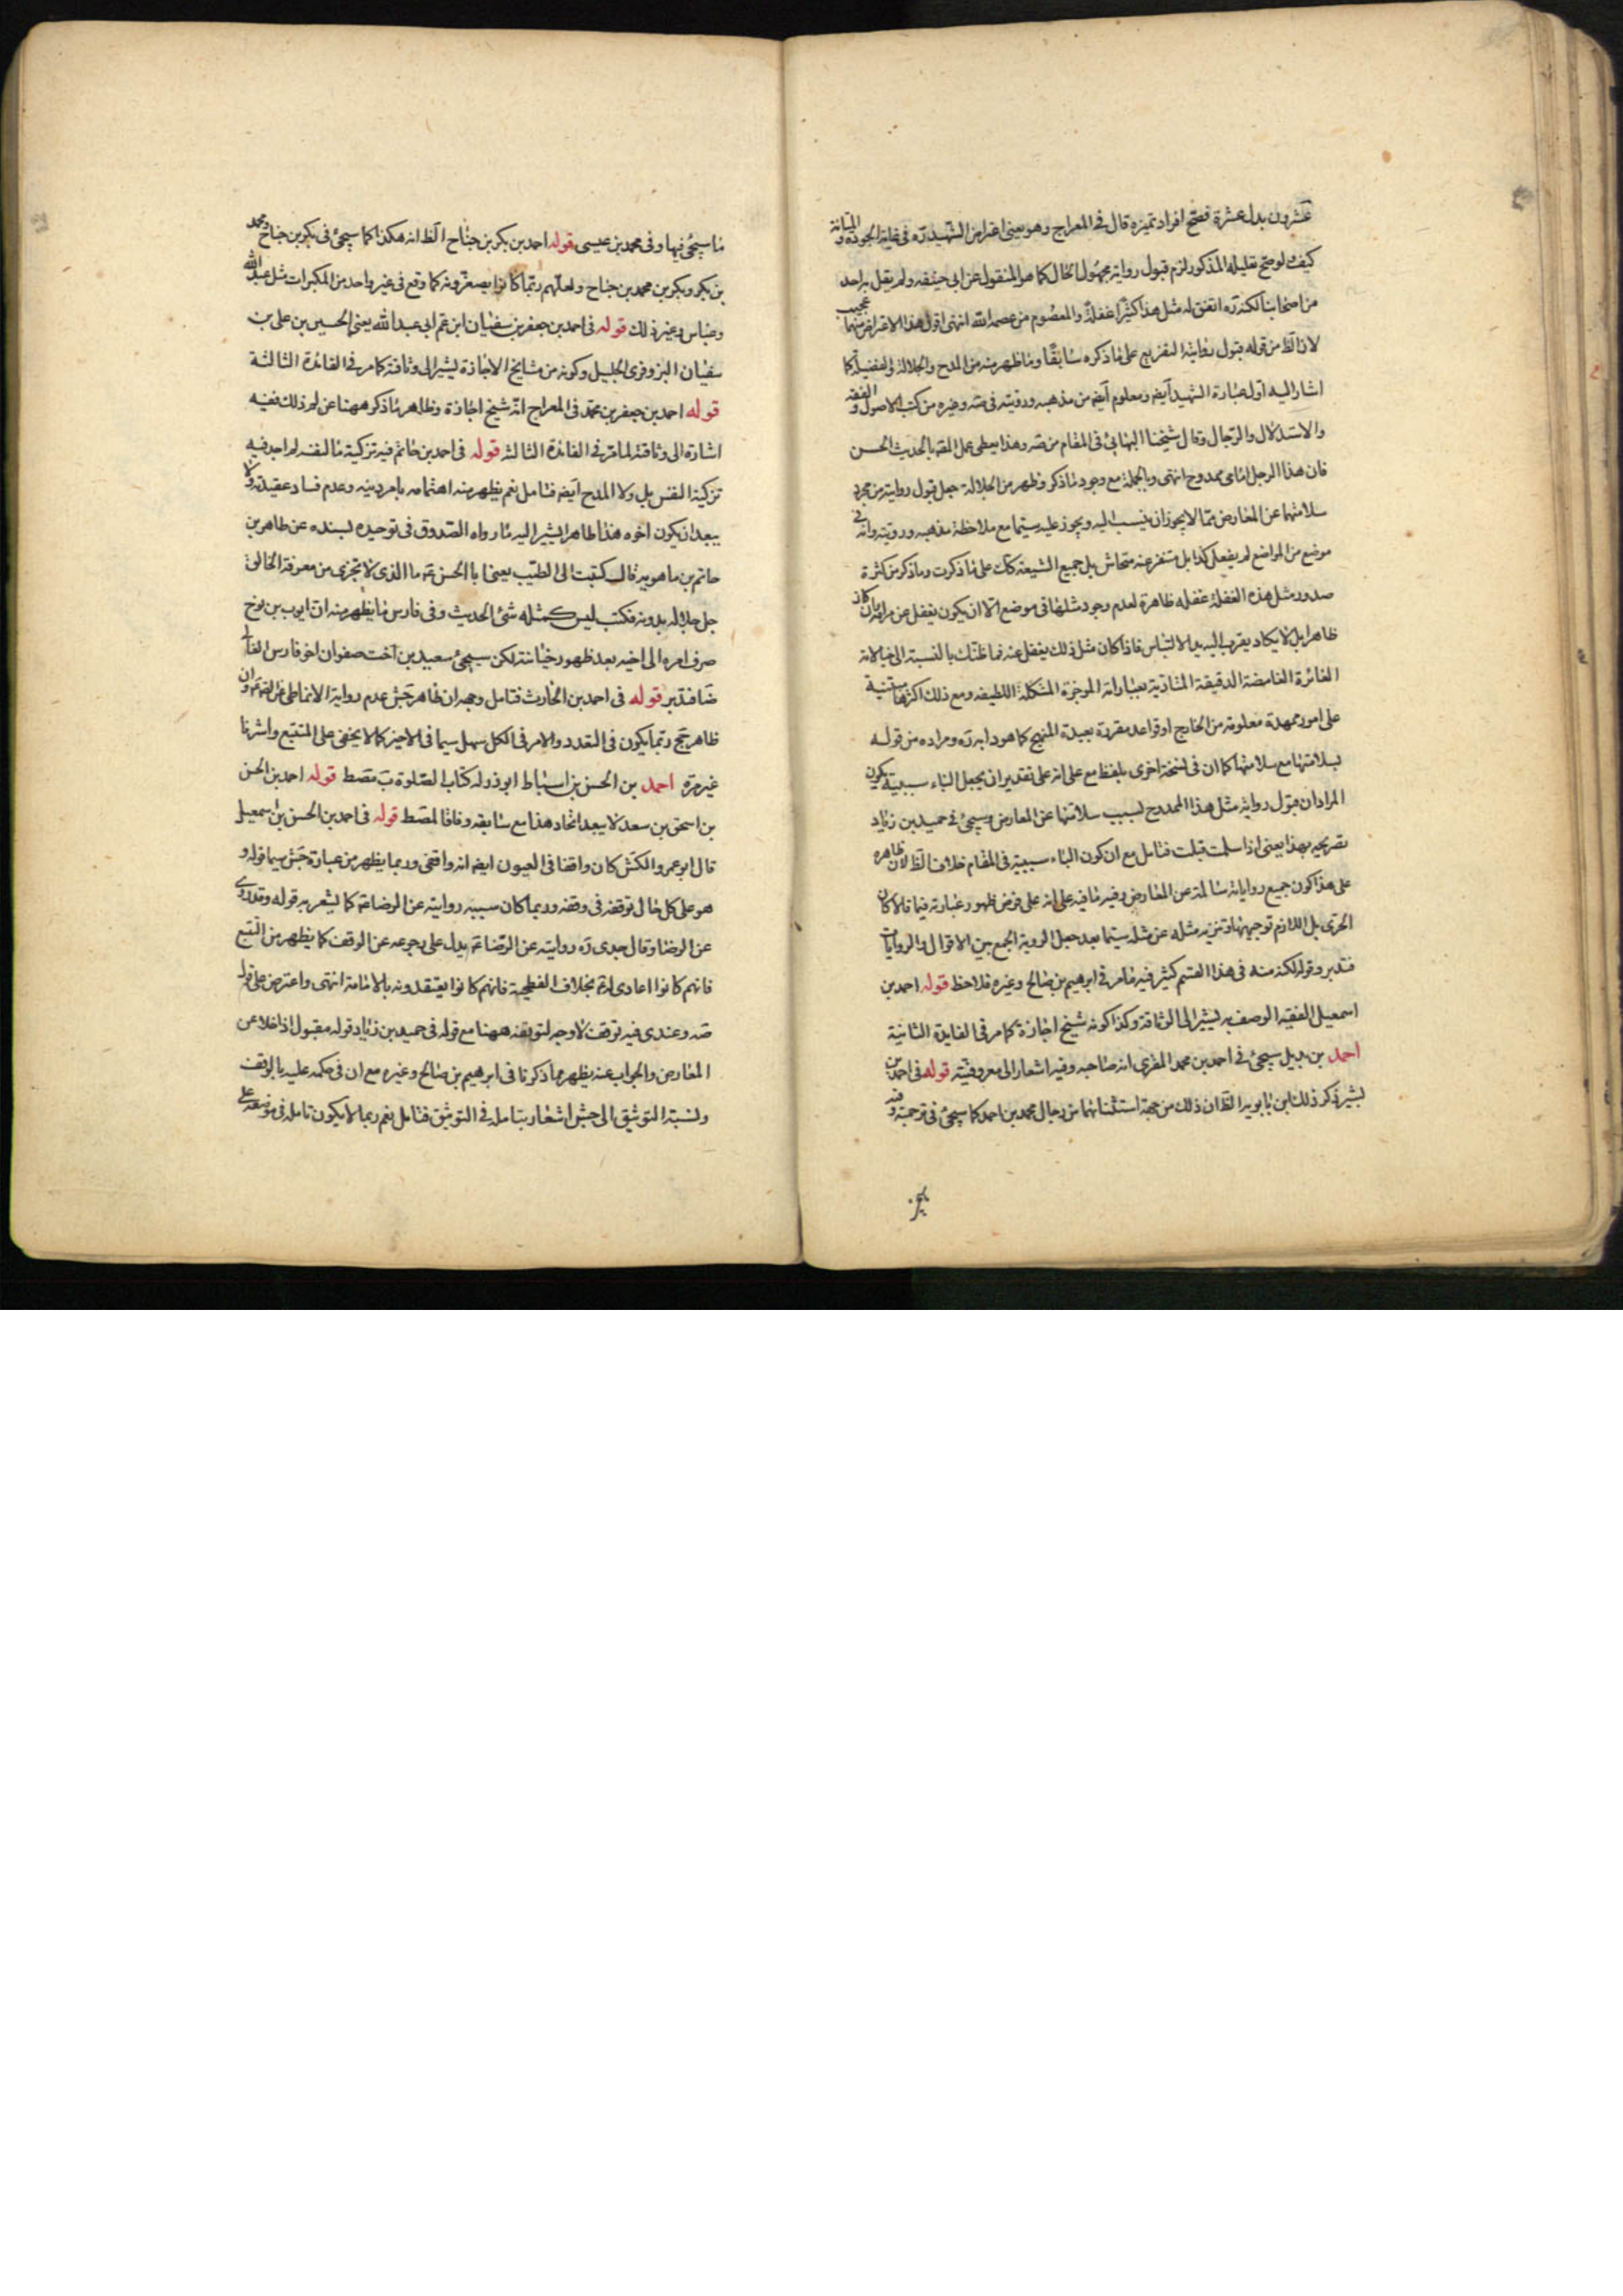 عشرون بدل عشرة فصح افراد تميزه قال في المعراج وهو يعنى اعتراض الشهيد ره في غاية الجودة والمتانة
كيف لو صح تعليله المذكور لزم قبول رواية مجهول الحال كما هو المنقول عن ابى حنيفه ولم يقل به احد
من اصحابنا لكنه ره اتفق له مثل هذا كثيرا غفلة والمعصوم من عصمه الله انتهى اقول هذا الاعتراض منهما عجيب
لان الظ من قوله قبول روايته التفريع على ما ذكره سابقا وما ظهر منه من المدح والجلالة والفضيلة كما
اشار اليه اول عبارة الشهيد ايضه ومعلوم ايضه من مذهبه ورويته في صه وغيره من كتب الاصول والفقه
والاستدلال والرجال وقال شيخنا البهائى فى المقام من صه وهذا يعطى عمل المصه بالحديث الحسن
فان هذا الرجل امامى ممدوح انتهى وبالجملة مع وجود ما ذكر وظهر من الجلالة جعل قبول روايته من مجرد
سلامتها عن المعارض مما لا يجوز ان ينسب اليه ويجوز عليه سيما مع ملاحظة مذهبه ورويته وانه فى
موضع من المواضع لم يفعل كذا بل متنفر عنه متحاش بل جميع الشيعة كك على ما ذكرت وما ذكر من كثرة
صدور مثل هذه الغفلة غفله ظاهرة لعدم وجود مثلها فى موضع الا ان يكون يغفل عن مرامه بان كان
ظاهرا بل لا يكاد يقرب اليه يد الالتباس فاذا كان مثل ذلك يغفل عنه فما ظنك بالنسبة الى خيالاته
الغائرة الغامضة الدقيقة المتادية بعباراته الموجزة المشكلة اللطيفه ومع ذلك اكثرها مبتنية
على امور ممهدة معلومة من الخارج او قواعد مقررة بعيدة المنهج كما هو دابه ره ومراده من قوله
بسلامتها مع سلامتها كما ان فى نسخة اخرى بلفظ مع على انه على تقدير ان يجعل الباء سببية يكون
المراد ان قبول رواية مثل هذا الممدوح بسبب سلامتها عن المعارض وسيجئ فى حميد بن زياد
تصريحه بهذا يعنى اذا سلمت قبلت فتامل مع ان كون الباء سببية فى المقام خلاف الظ لان ظاهره
على هذا كون جميع رواياته سالمة عن المعارض وفيه ما فيه على انه على فرض ظهور عبارته فيما قالا كان
الحرى بل اللازم توجيهها وتنزيه مثله عن مثله سيما بعد جعل الروية الجمع بين الاقوال والروايات
فتدبر وقوله لكنه منه فى هذا القسم كثير فيه ما مر فى ابرهيم بن صالح وغيره فلاحظ قوله احمد بن
اسمعيل الفقيه الوصف به يشير الى الوثاقة وكذا كونه شيخ اجازة كما مر فى الفايدة الثانية
احمد بن بديل سيجئ فى احمد بن محمد المقرى انه صاحبه وفيه اشعار الى معروفيته قوله فى احمد بن
بشير ذكر ذلك ابن بابويه الظ ان ذلك من جهة استثنائهما من رجال محمد بن احمد كما سيجئ فى ترجمته وفيه
ما سيجئ فيها وفى محمد بن عيسى قوله احمد بن بكر بن جناح الظ انه هكذا كما سيجئ فى بكر بن جناح ومحمد
بن بكر وبكر بن محمد بن جناح ولعلهم ربما كانوا يصغرونه كما وقع فى غير واحد من المكبرات مثل عبد الله
وعباس وغير ذلك قوله فى احمد بن جعفر بن سفيان ابن عم ابى عبد الله يعنى الحسين بن على بن
سفيان البزوفرى الجليل وكونه من مشايخ الاجازة يشير الى وثاقته كما مر فى الفائدة الثالثة
قوله احمد بن جعفر بن محمد فى المعراج انه شيخ اجازة وظاهر ما ذكر ههنا عن لم ذلك ففيه
اشارة الى وثاقته لما مر فى الفائدة الثالثه قوله فى احمد بن حاتم فيه تزكية ما لنفسه لم اجد فيه
تزكية النفس بل ولا المدح ايضه فتامل نعم يظهر منه اهتمامه بامر دينه وعدم فساد عقيدته ولا
يبعد ان يكون اخوه هذا طاهر المشير اليه ما رواه الصدوق فى توحيده بسنده عن طاهر بن
حاتم بن ماهويه قال كتبت الى الطيب يعنى ابا الحسن عه ما الذى لا تجزى من معرفة الخالق
جل جلاله بدونه فكتب ليس كمثله شئ الحديث وفى فارس ما يظهر منه ان ايوب بن نوح
صرف امره الى اخيه بعد ظهور خيانته لكن سيجئ سعيد بن اخت صفوان اخو فارس الغالى
ضا فتدبر قوله فى احمد بن الحارث فتامل وجهه ان ظاهر جش عدم رواية الانماطى عن المفضل وان
ظاهر جح ربما يكون فى التعدد والامر فى الكل سهل سيما فى الاخير كما لا يخفى على المتتبع واشرنا
غير مرة احمد بن الحسن بن اسباط ابو ذر له كتاب الصلوة ب مصط قوله احمد بن الحسن
بن اسحق بن سعد لا يبعد اتحاد هذا مع سابقه وفاقا لمصط قوله فى احمد بن الحسن بن اسمعيل
قال ابو عمرو الكش كان واقفا فى العيون ايضه انه واقفى وربما يظهر من عبارة جش سيما قوله و
هو على كل حال توقفه فى وقفه وربما كان سببه روايته عن الرضا عه كما يشعر به قوله وقد روى
عن الرضا وقال جدى ره روايته عن الرضا عه يدل على رجوعه عن الوقف كما يظهر من التتبع
فانهم كانوا اعادى له عه بخلاف الفطحية فانهم كانوا يعتقدونه بالامامة انتهى واعترض على قوله
صه وعندى فيه توقف لا وجه لتوقفه ههنا مع قوله فى حميد بن زياد قوله مقبول اذا خلا عن
المعارض والجواب عنه يظهر مما ذكرنا فى ابرهيم بن صالح وغيره مع ان فى حكمه عليه بالوقف
ونسبته التوثيق الى جش اشعار بتامله فى التوثيق فتامل نعم ربما لا يكون تامله فى موضعه على